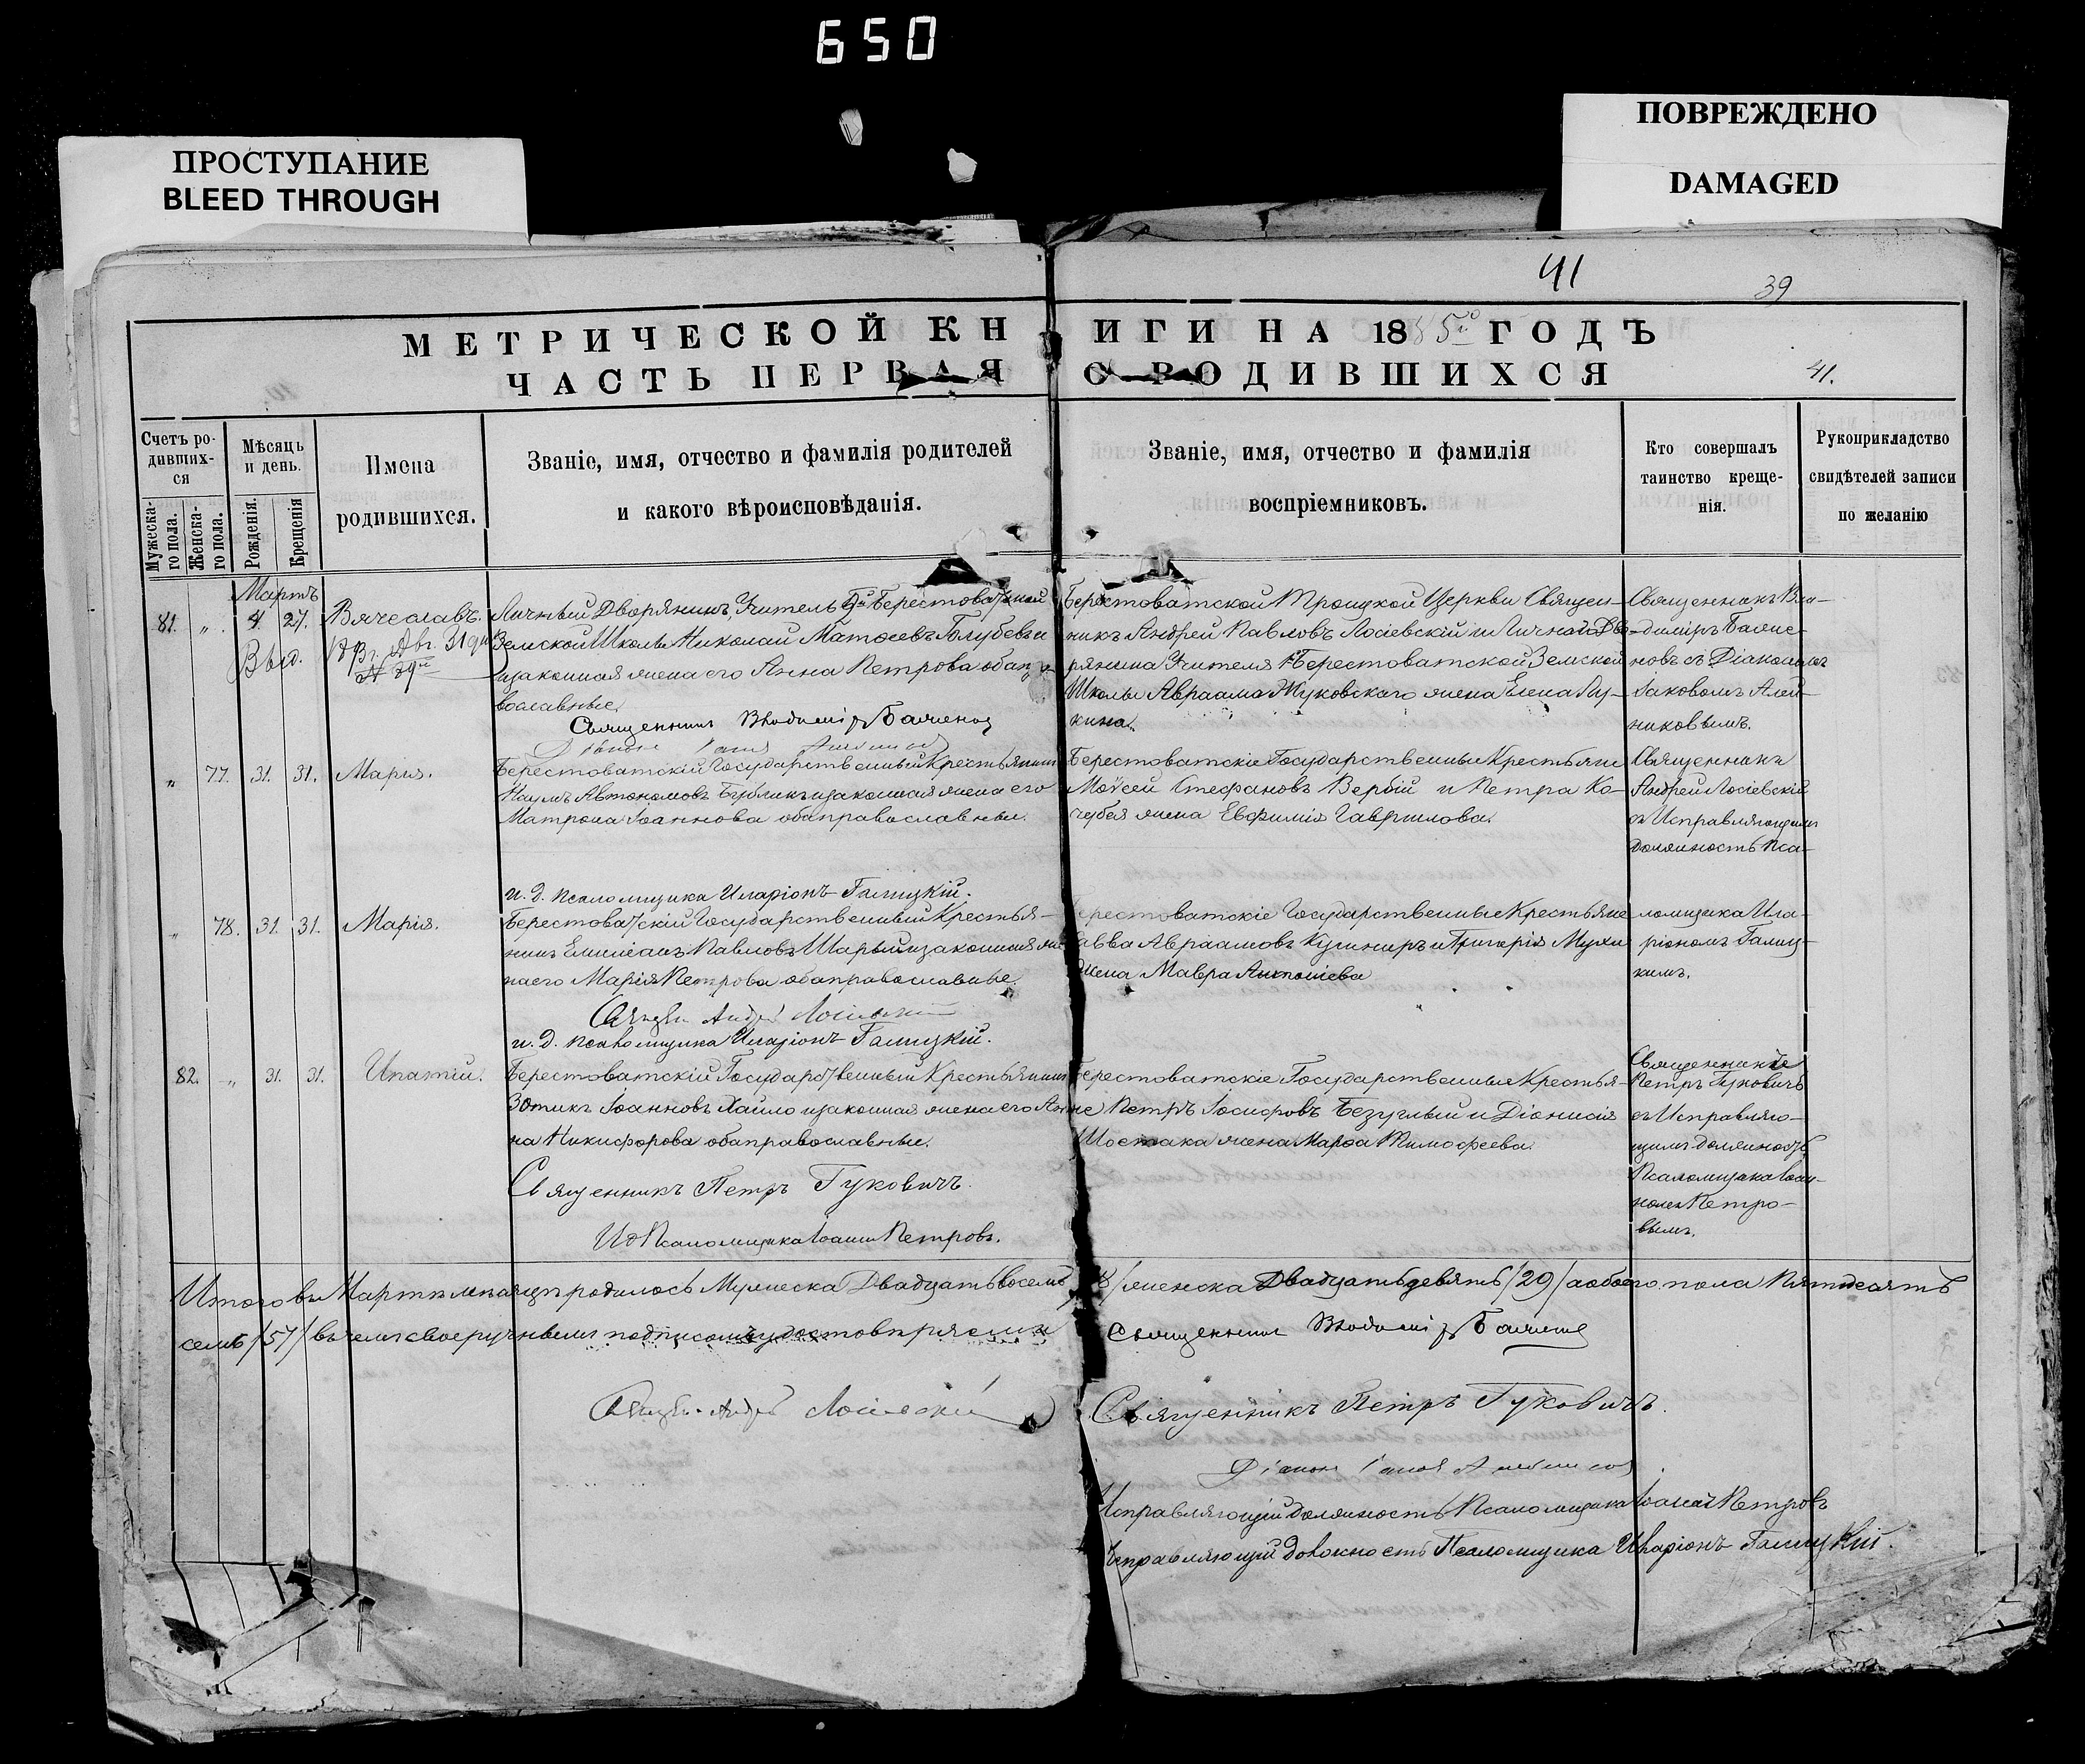 650
ПРОСТУПАНИЕ
BLEED THROUGH
ПОВРЕЖДЕНО
DAMAGED
41
39
МЕТРИЧЕСКОЙ КНИГИ НА 1885го ГОДЪ
ЧАСТЬ ПЕРВАЯ О РОДИВШИХСЯ
41.
Счетъ ро-
дивших-
ся
Мужеска-
го пола.
Женска-
го пола.
Мѣсяцъ
и день.
Рожденія.
Крещенія
Имена
родившихся.
Званіе, имя, отчество и фамилія родителей
и какого вѣроисповѣданія.
Званіе, имя, отчество и фамилія
воспріемниковъ.
Кто совершалъ
таинство креще-
нія.
Рукоприкладство
свидѣтелей записи
по желанію
Мартъ
81. „ 4 27. Вячеславъ.
Выд.
Личный Дворянинъ, Учитель Берестоватской
Земской Школы Николай Матѳеевъ Голубевъ и
законная жена его Анна Петрова оба пра-
вославные.
Священникъ Владиміръ Баженовъ
Берестоватской Троицкой Церкви Священ-
никъ Андрей Павловъ Лосіевскій и Личнаго Дво-
рянина Учителя Берестоватской Земской
Школы Авраама Жуковскаго жена Елена Лу-
кина.
Священникъ Вла-
диміръ Баже-
новъ съ Діакономъ
Іаковомъ Алей-
никовымъ.
„ 77. 31. 31. Марія.
Берестоватскій Государственный Крестьянинъ
Наумъ Автономовъ Бубликъ и законная жена его
Матрона Іоаннова оба православные.
Берестоватскіе Государственные Крестьяне
Моѵсей Стефановъ Вербій и Петра Ко-
чубея жена Евфимія Гаврилова.
Священникъ
Андрей Лосіевскій
съ Исправляющимъ
должность Пса-
и. д. псаломщика Иларіонъ Галицкій.
„ 78. 31. 31. Марія.
Берестоватскій Государственный Крестья-
нинъ Емиліанъ Павловъ Шарый и законная же
на его Марія Петрова оба православные.
Берестоватскіе Государственные Крестьяне
Савва Авраамовъ Кушниръ и Григорія Мухи
жена Мавра Антоніева
ломщика Ила-
ріономъ Галиц-
кимъ.
Священ. Андрей Лосіевскій
и. д. псаломщика Иларіонъ Галицкій.
82. „ 31. 31. Ипатій.
Берестоватскій Государственный Крестьянинъ
Зотикъ Іоанновъ Хайло и законная жена его Ан
на Никифорова оба православные.
Берестоватскіе Государственные Крестья-
не Петръ Іосифовъ Безуглый и Діонисія
Шостака жена Марѳа Тимофеева.
Священникъ
Петръ Гуковичъ
съ Исправляю-
щимъ должность
Псаломщика Іоан-
номъ Петро-
вымъ.
Священникъ Петръ Гуковичъ.
ИД Псаломщика Іоаннъ Петровъ.
Итого въ Мартѣ мѣсяцѣ родилось Мужеска Двадцать восемь /28/ женска Двадцать девять /29/ а обоего пола Пятьдесятъ
семь /57/ въ чемъ своеручнымъ подписомъ удостовѣряемъ
Священникъ Владиміръ Баженовъ
Священ. Андрей Лосіевскій
Священникъ Петръ Гуковичъ.
Діаконъ Іаковъ Алейниковъ
Исправляющій должность Псаломщика Іоаннъ Петровъ
Исправляющій должность Псаломщика Иларіонъ Галицкій.